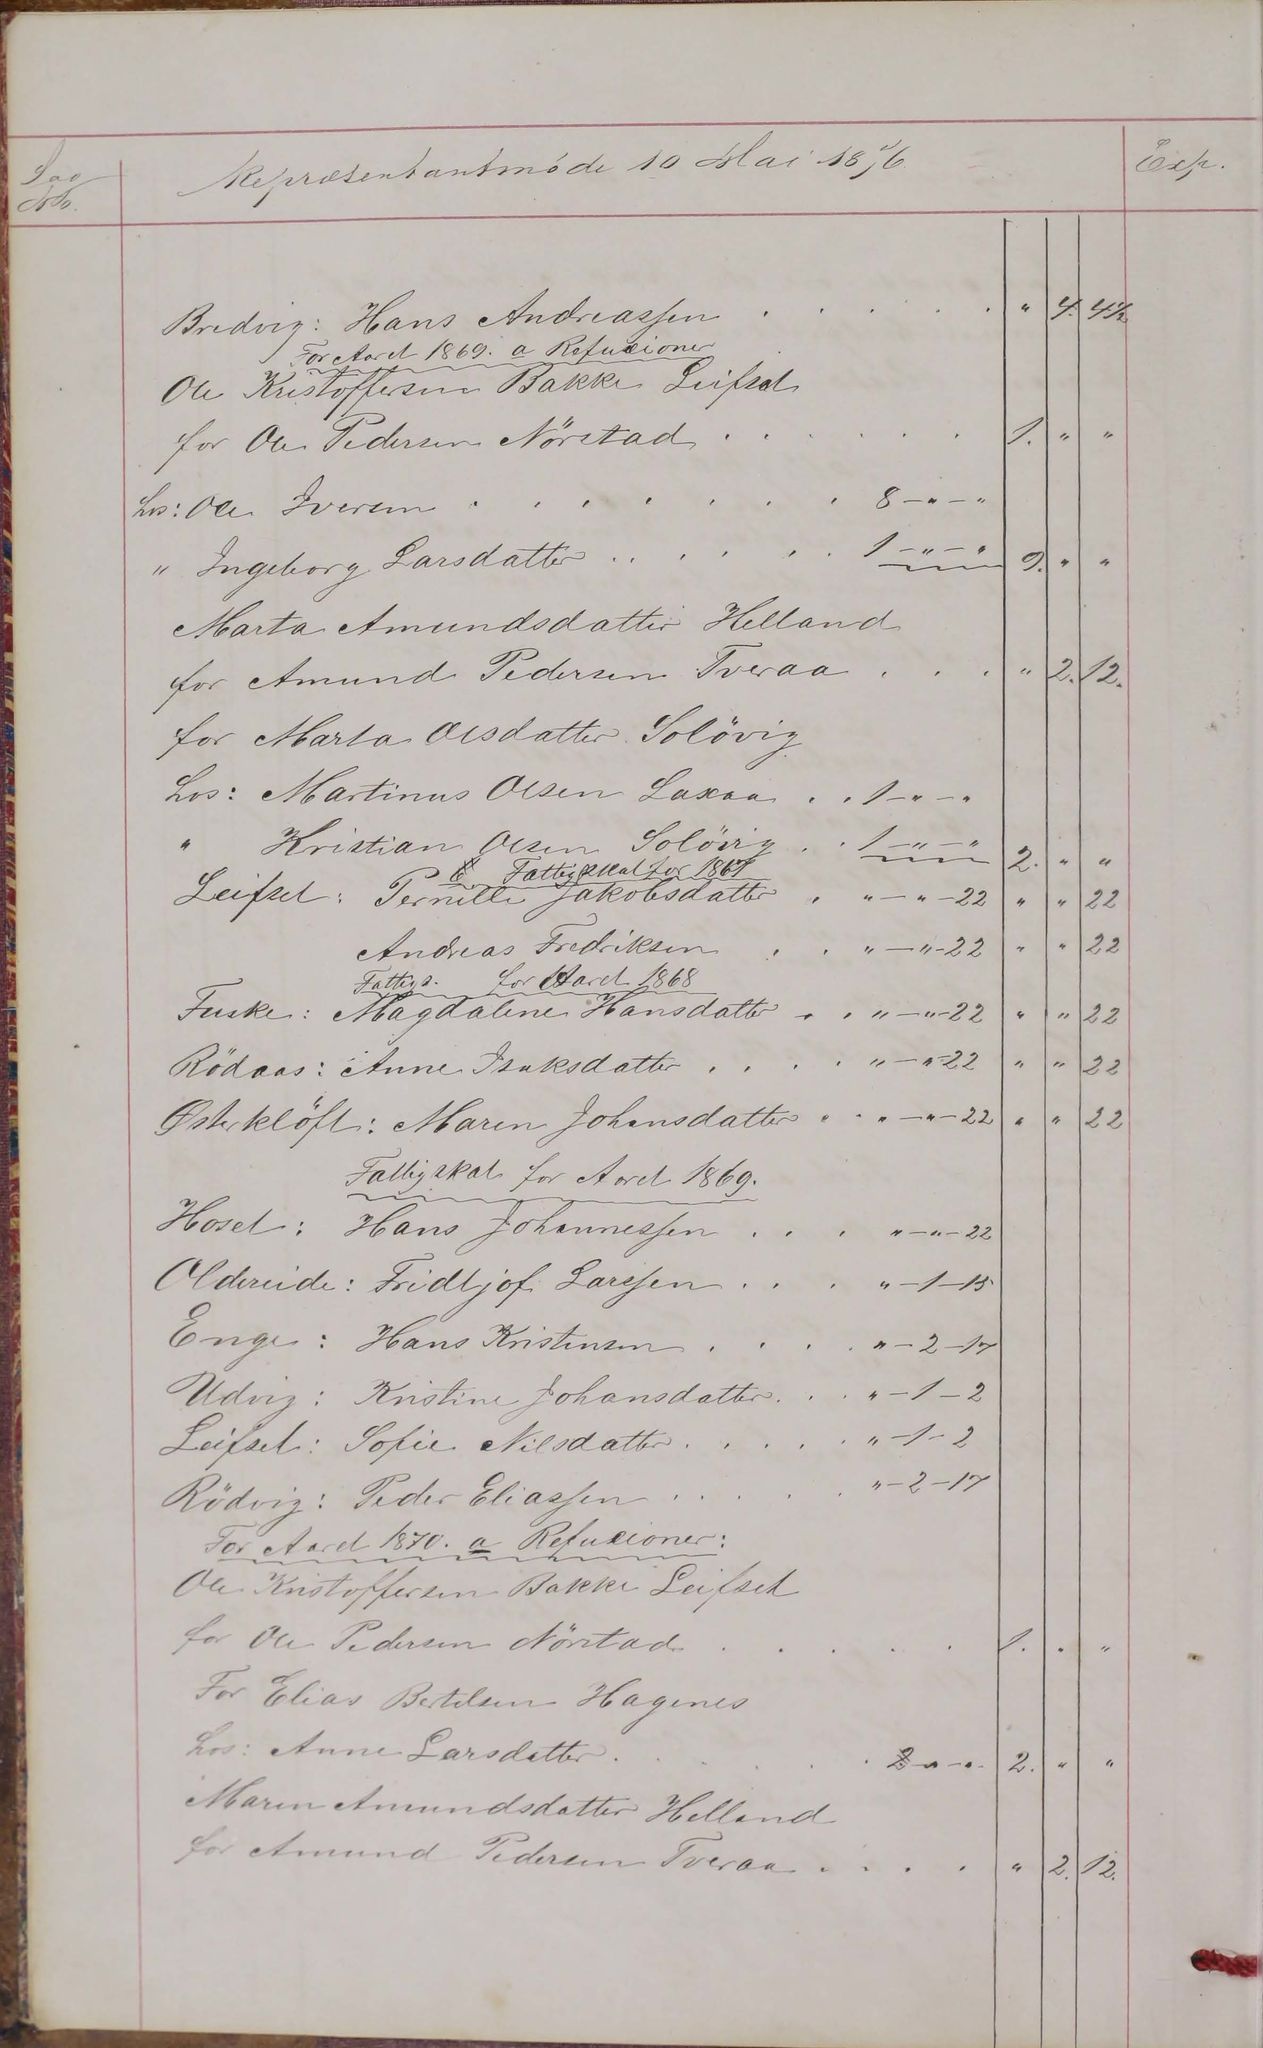 Sag No. Repræsentantmöde 10 Mai 1876 Exp.
Bredvig: Hans Andreassen . . . . . " 4. 4½
For Aaret 1869. a Refusioner
Ole Kristoffersen Bakke Leifset
for Ole Pedersen Nörstad . . . . . . 1. " "
Hos: Ole Iversen . . . . . . . 8 - " - "
" Ingeborg Larsdatter . . . . . . 1 - " - " 9. " "
Marta Amundsdatter Helland
for Amund Pedersen Tveraa . . . " 2. 12.
for Marta Olsdatter Solövig
Hos: Martinus Olsen Laxaa . . 1 - " - "
" Kristian Olsen Solövig . . 1 - " - " 2. " "
Fattigskat for 1867
Leifset: Pernille Jakobsdatter . " - " - 22 " " 22
Andreas Fredriksen . . " - " - 22 " " 22
Fattigs. for Aaret 1868
Fuske: Magdalene Hansdatter . . " - " - 22 " " 22
Rödaas: Anne Isaksdatter . . . . " - " - 22 " " 22
Østerklöft: Maren Johansdatter . . " - " - 22 " " 22
Fattigskat for Aaret 1869.
Hoset: Hans Johannessen . . . " - " - 22
Oldereide: Fridtjof Larssen . . . " - 1 - 15
Enge: Hans Kristensen . . . . " - 2 - 17
Udvig: Kristine Johansdatter . . . " - 1 - 2
Leifset: Sofie Nilsdatter . . . . . " - 1 - 2
Rödvig: Peder Eliassen . . . . . " - 2 - 17
For Aaret 1870. a Refusioner:
Ole Kristoffersen Bakke Leifset
for Ole Pedersen Nörstad . . . . . 1. " "
For Elias Bertelsen Hagenes
Hos: Anne Larsdatter . . . . . 2 - " - " 2. " "
Maren Amundsdatter Helland
for Amund Pedersen Tveraa . . . . " 2. 12.